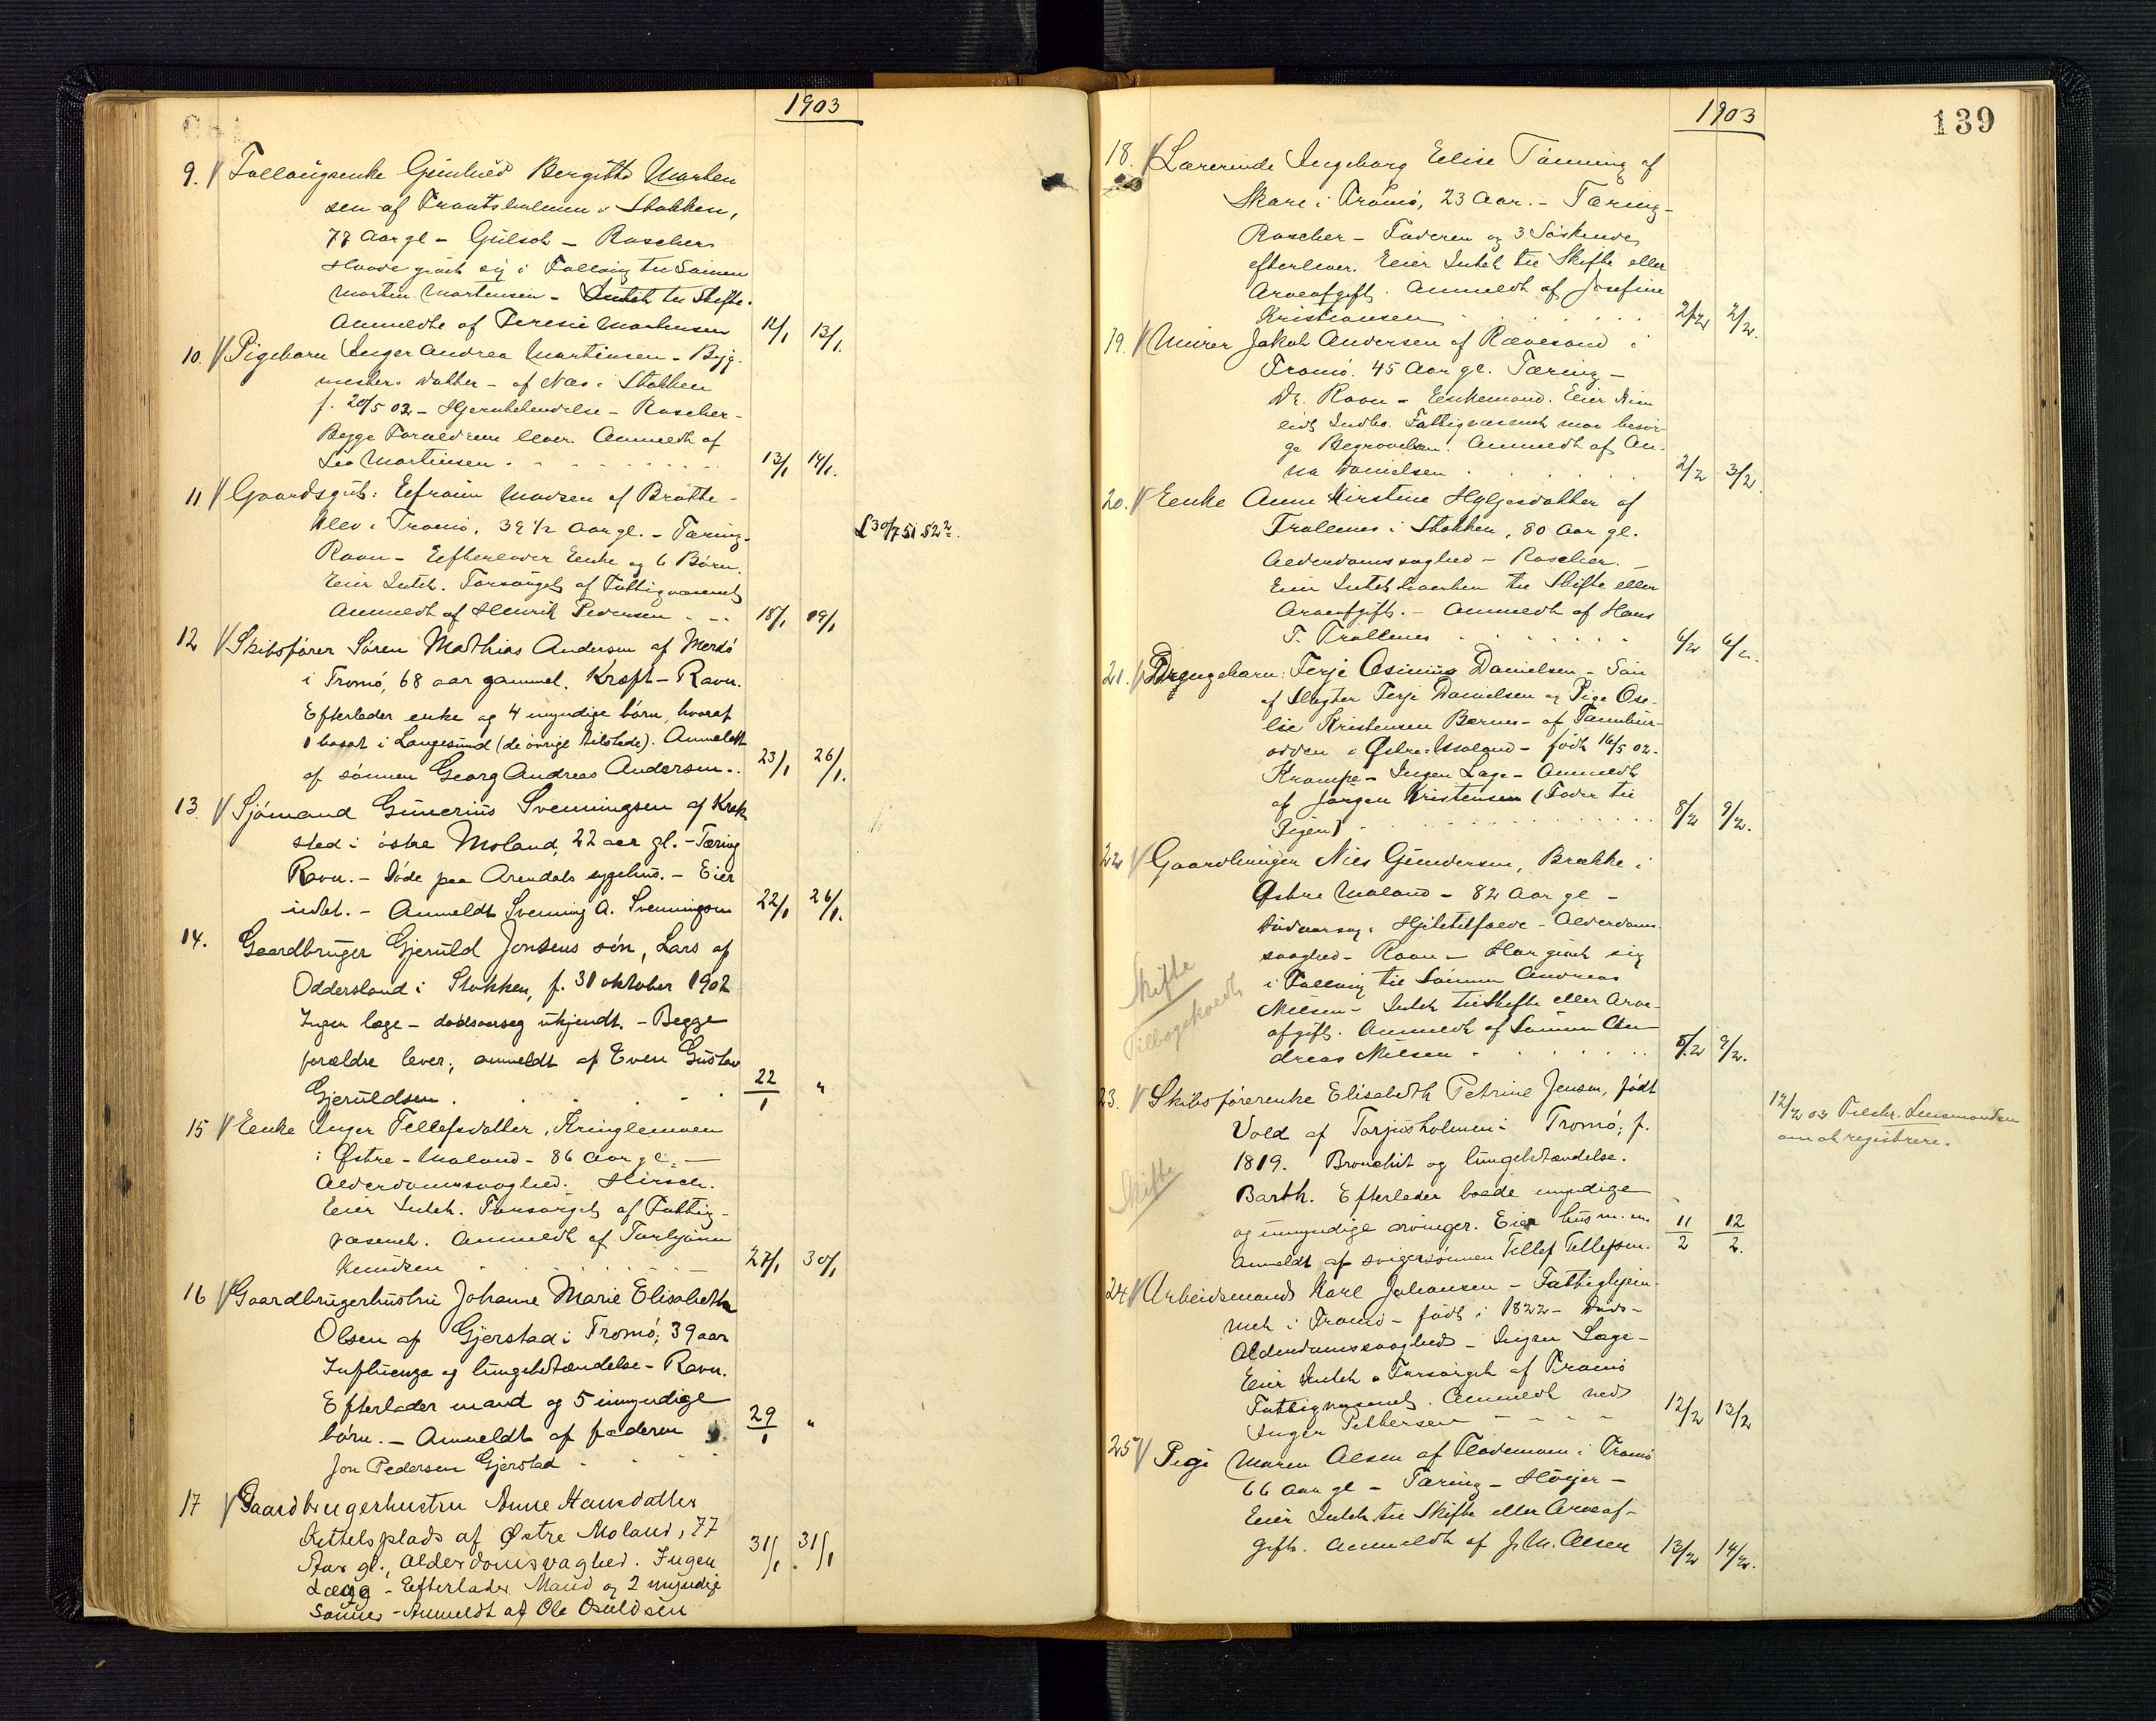 1903
9. Follaugsenke Gunhild Bergitte Morten
sen af Frantsholmen i Stokken,
77 Aar gl – Gulsot – Roscher
Havde givet sig i Follaug til Sønnen
Morten Mortensen – Intet til Skifte.
Anmeldte af Teresie Mortensen 12/1 13/1.
10. Pigebarn Inger Andrea Martinsen – Byg-
mester Datter – af Næs i Stokken
f. 20/5 02 – Hjernebetendelse – Roscher –
Begge Foreldrene lever. Anmeldt af
Lea Martinsen 13/1 14/1.
11 Gaardsgut: Eefraim Madsen af Bratte-
klev i Tromø, 39 1/2 Aar gl. – Tæring –
Ravn – Eefterlader Enke og 6 Børn.
Eier Intet. Forsørget af Fattigvæsenet
Anmeldt af Henrik Pedersen 18/1 19/1
£ 30/7 51 § 2 2.
12 Skibsfører Søren Mathias Andersen af Merdø
i Tromø, 68 aar gammel. Kræft – Ravn.
Efterlader enke og 4 myndige børn, hvoraf
1 bosat i Langesund (de øvrige tilstede). Anmeldt
af sønnen Georg Andreas Andersen. 23/1 26/1.
13. Sjømand Gunerius Svenningsen af Krøk
sted i østre Moland, 22 aar gl. – Tæring
Ravn. – Døde paa Arendals sygehus. – Eier
intet. – Anmeldt Svenning A. Svenningsen 22/1 26/1.
14. Gaardbruger Gjeruld Jonsens søn, Lars af
Oddersland i Stokken, f. 31 oktober 1902
Ingen læge – dødsaarsag ukjendt. – Begge
forældre lever; anmeldt af Even Gustav
Gjeruldsen. 22/1 "
15 Eenke Inger Tellefsdatter, Kringlemoen
i Østre – Moland – 86 Aar gl. –
Alderdomssvaghed. Hirsch.
Eeier Intet. Forsørget af Fattig-
væsenet. Anmeldt af Torbjønn
Knudsen 27/1 30/1
16 Gaardbrugerhustru Johanne Marie Elisabeth
Olsen af Gjerstad i Tromø; 39 aar
Influenza og lungebetændelse – Ravn.
Efterlader mand og 5 umyndige
børn. – Anmeldt af faderen 29/1 "
Jon Pedersen Gjerstad
17 Gaardbrugerhustru Anne Hansdatter
Kittelsplads af Østre Moland, 77
Aar gl., Alderdomsvaghed. Ingen
Læge – Eefterlader Mand og 2 myndige
Sønner – Anmeldt af Ole Osuldsen 31/1. 31/1
1903
139
18. Lærerinde Ingeborg Eelise Tønning af
Skare i Tromø, 23 Aar. – Tæring –
Roscher – Faderen og 3 Søskende
efterlever. Eeier Intet til Skifte eller
Arveafgift. Anmeldt af Josefine
Kristiansen 2/2 2/2.
19. Murer Jakob Andersen af Rævesand i
Tromø. 45 Aar gl. Tæring –
Dr. Ravn – Eenkemand. Eeier
Indbo. Fattigvæsenet maa besør-
ge Begravelsen. Anmeldt af An-
na Danielsen 2/2 3/2.
20. Eenke Anne Kirstine Hylgesdatter af
Trollenes i Stokken, 80 Aar gl.
Alderdomssvaghed – Roscher. –
Eeier Intet hverken til Skifte eller
Arveafgift. – Anmeldt af Hans
T. Trollenes 6/2 6/2.
21. Drengebarn: Terje Osinius Danielsen – Søn
af Slagter Terje Danielsen og Pige Ose-
lie Kristensen Barnes – af Tambur-
odden i Østre-Moland – født 16/5 02.
Krampe – Ingen Læge – Anmeldt
af Jørgen Kristensen (Fader til
Pigen) 8/2 9/2.
22 Gaardbruger Niels Gundersen, Brække i
Østre Moland – 82 Aar gl –
Dødsaarsag: Hjertetilfælde – Alderdoms
svaghed – Ravn – Har givet sig
i Follaug til Sønnen Andreas
Nielsen – Intet til Skifte eller Arve-
afgift. Anmeldt af Sønnen An-
dreas Nielsen 8/2 9/2.
Skifte
Tilbagekaldt
23. Skibsførerenke Elisabeth Petrine Jensen, født
Vold af Torjusholmen i Tromø; f.
1819. Bronchit og lungebetændelse.
Barth. Efterlader baade myndige
og umyndige arvinger. Eier hus m.m.
Anmeldt af svigersønnen Tellef Tellefsen. 11/2 12/2.
Skifte
12/2 03 Tilskr. Lensmanden
om at registrere.
24. Arbeidsmand Karl Johansen – Fattighjem-
met i Tromø – født i 1822 – Døds-
Alderdomssvaghed – Ingen Læge –
Eeier Intet. Forsørget af Tromø
Fattigvæsenet. Anmeldt ved
Inger Pettersen 12/2 13/2
25 Pige Maren Olsen af Flademoen i Tromø
66 Aar gl – Tæring – Høyer –
Eeier Intet til Skifte eller Arveaf-
gift. Anmeldt af J. M. Olsen 13/2 14/2.